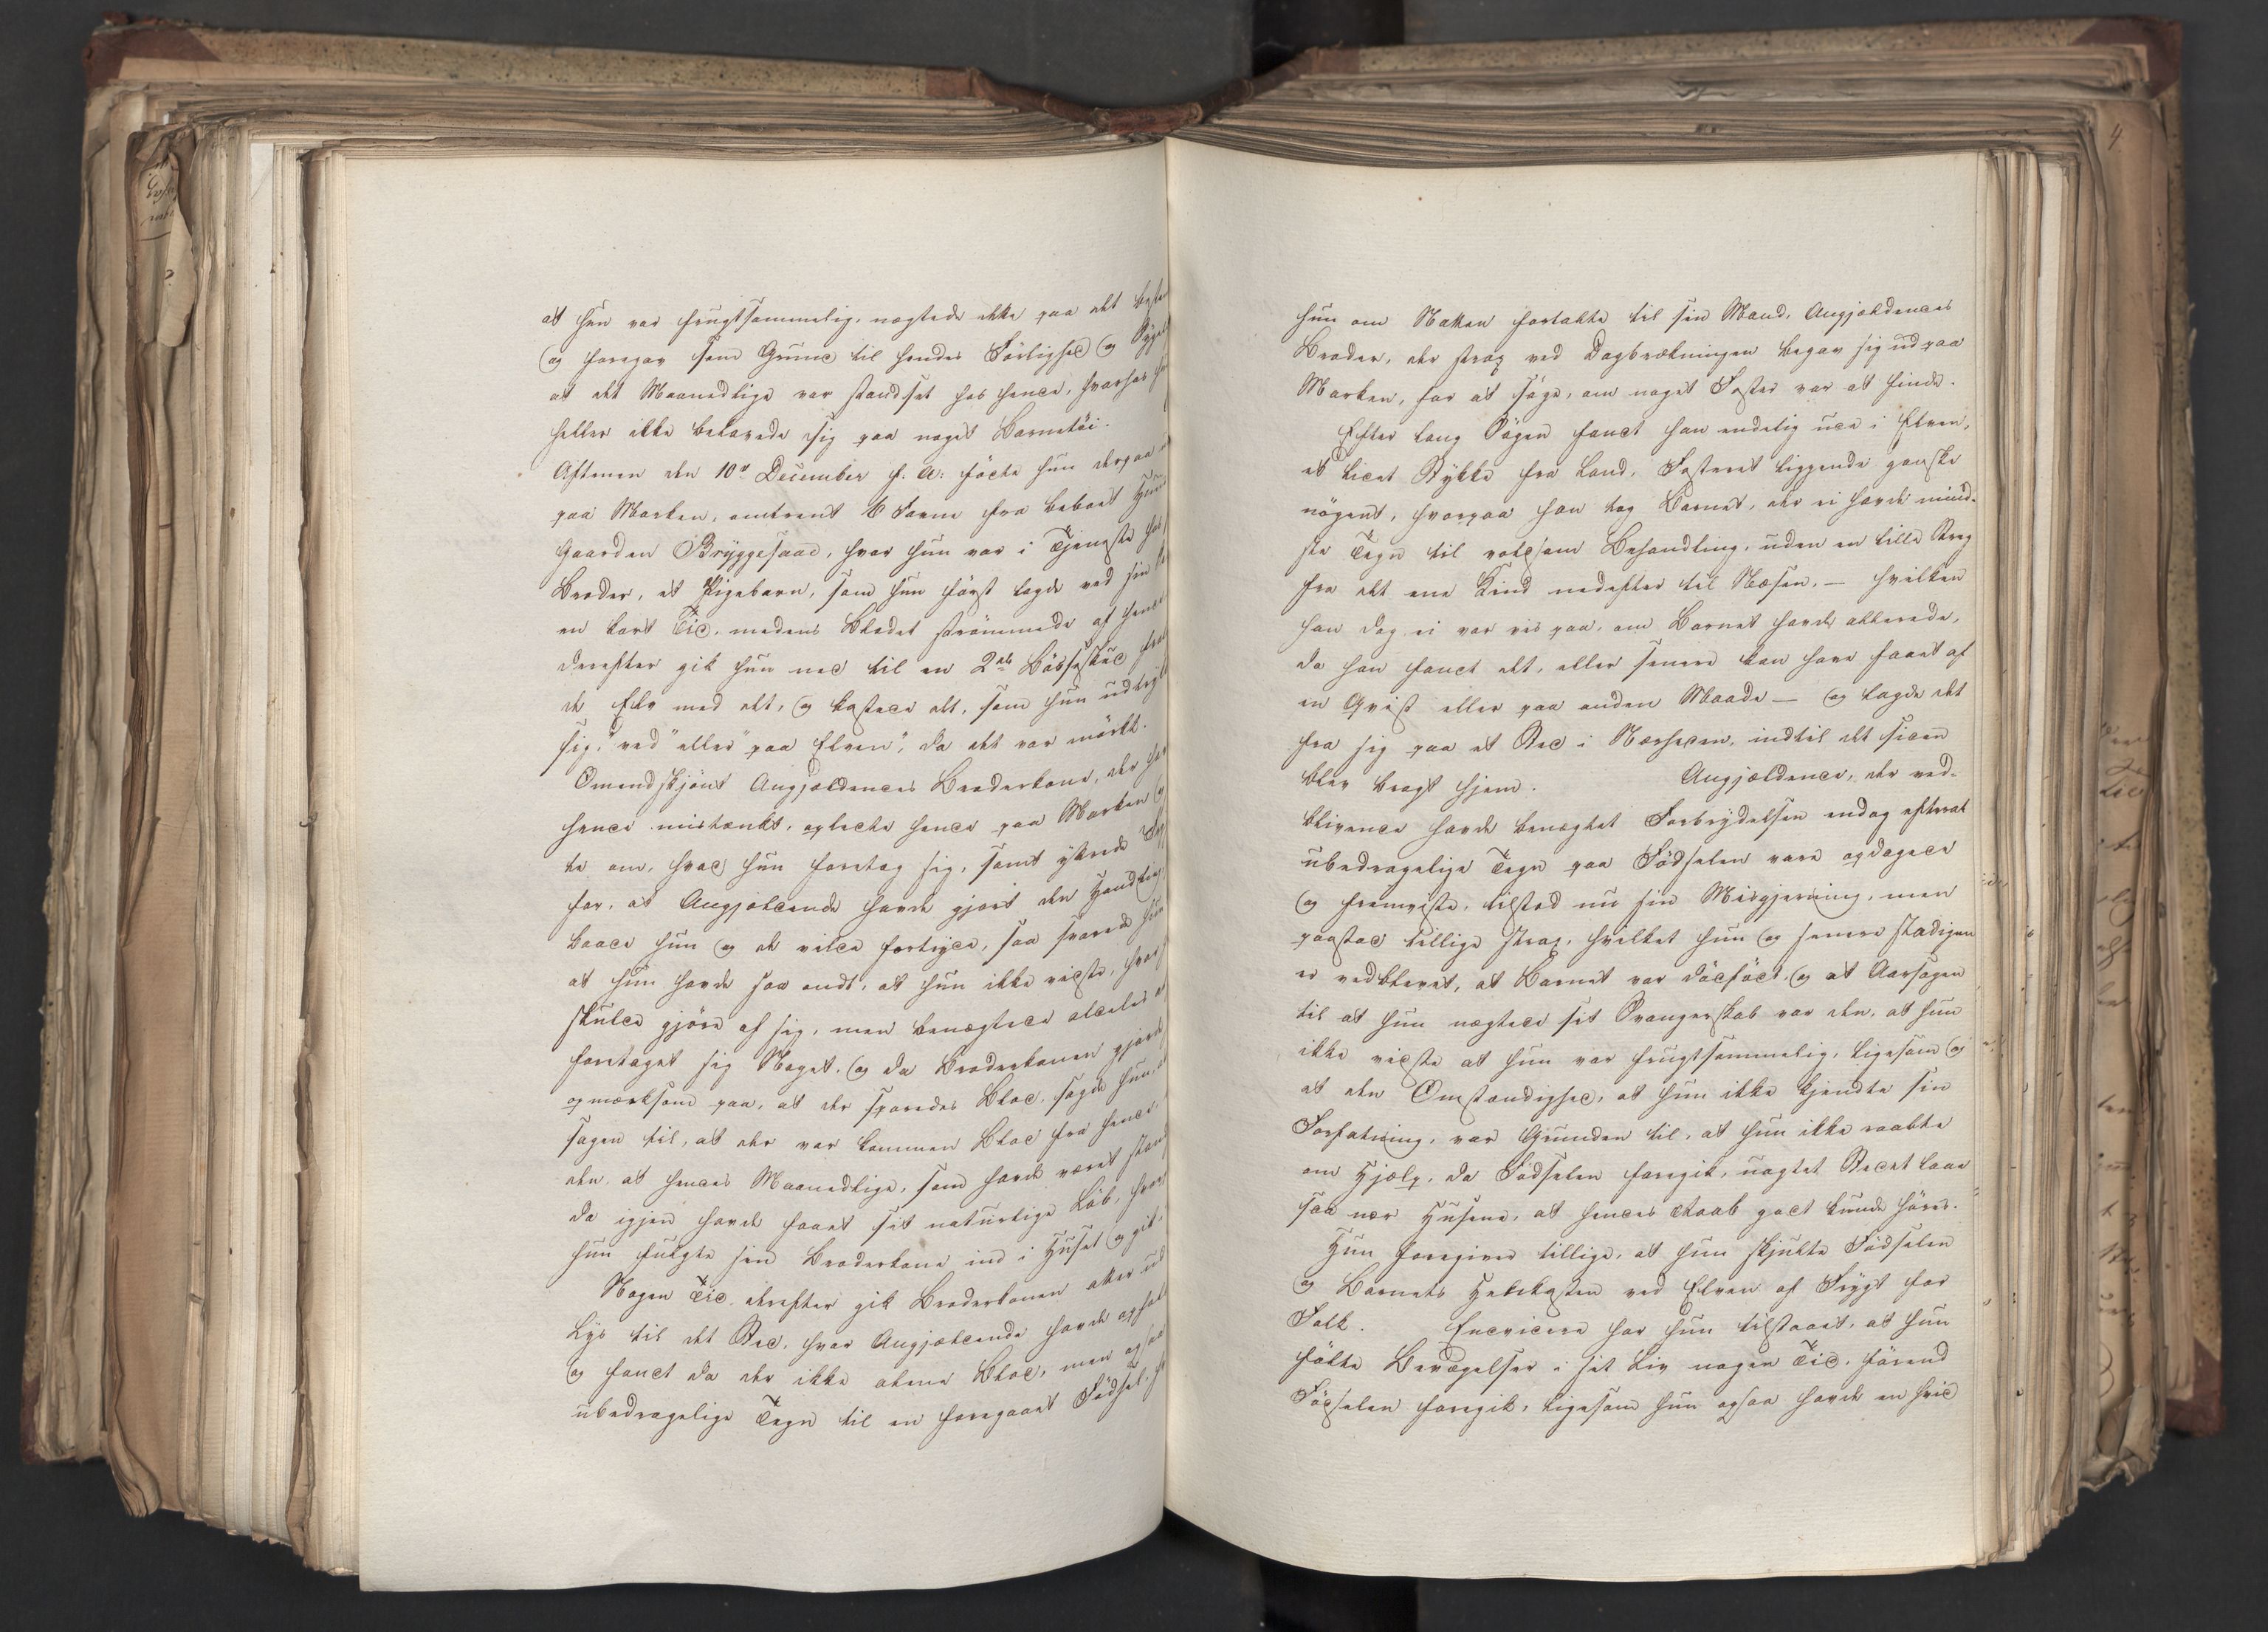 at hun var frugtsommelig, nægtede ikke paa det
og foregav som Grund til hendes Förlighed og
at det Maanedlige var standset hos hende, hvorhos
heller ikke belavede sig paa noget Barnetöi.
Aftenen den 10de December f: A: födte hun derpaa
paa Marken, omtrent 6 Favne fra beboet
Gaarden Bryggesaad, hvor hun var i Tjeneste hos
Broder, et Pigebarn, som hun först lagde ved sin
en kort Tid, medens Blodet strömmede af hende
derefter gik hun ned til en 2de Bösseskud
de Elv med det, og kastede det, som hun
sig, "ved" eller "paa Elven", da det var mörkt.
Omendskjönt Angjældendes Broderkone, der
hende mistænkt, opledte hende paa Marken og
te om, hvad hun foretog sig, samt yttrede
for, at Angjældende havde gjort den
baade hun og de vilde fortryde, saa svarede hun
at hun havde saa ondt, at hun ikke vidste, hvor
skulde gjöre af sig, men benægtede aldeles at
foretaget sig Noget, og da Broderkonen gjorde
opmærksom paa, at der sporedes Blod, sagde hun, at
sagen til, at der var kommen Blod fra hende,
den, at hendes Maanedlige, som havde været
da igjen havde faaet sit naturlige Löb,
hun fulgte sin Broderkone ind i Huset og
Nogen Tid derefter gik Broderkonen atter ud
Lys til det Sted, hvor Angjældende havde
og fandt da der ikke alene Blod, men ogsaa
ubedragelige Tegn til en foregaaet Födsel,
4
hun om Natten fortalte til sin Mand, Angjældendes
Broder, der strax ved Dagbrækningen begav sig ud paa
Marken, for at söge, om noget Foster var at finde.
Efter lang Sögen fandt han endelig ude i Elven,
et lidet Stykke fra Land, Fosteret liggende ganske
nögent, hvorpaa han tog Barnet, der ei havde mind-
ste Tegn til voldsom Behandling, uden en lille Streg
fra det ene Kind nedefter til Næsen, – hvilken
han dog ei var vis paa, om Barnet havde allerede,
da han fandt det, eller senere kan have faaet af
en Qvist eller paa anden Maade – og lagde det
fra sig paa et Sted i Nærheden, indtil det siden
blev bragt hjem. Angjældende, der ved-
blivende havde benægtet Forbrydelsen endog efterat
ubedragelige Tegn paa Födselen vare opdagede
og fremviste, tilstod nu sin Misgjerning, men
paastod tillige strax, hvilket hun og senere stadigen
er vedblevet, at Barnet var dödfödt, og at Aarsagen
til at hun nægtede sit Svangerskab var den, at hun
ikke vidste at hun var frugtsommelig, ligesom og
at den Omstændighed, at hun ikke kjendte sin
Forfatning, var Grunden til, at hun ikke raabte
om Hjælp, da Födselen foregik, uagtet Stedet laae
saa nær Husene, at hendes Raab godt kunde höres.
Hun foregiver tillige, at hun skjulte Födselen
og Barnets Henkasten ved Elven af Frygt for
Folk. Endvidere har hun tilstaaet, at hun
fölte Bevægelser i sit Liv nogen Tid, förend
Födselen foregik, ligesom hun ogsaa havde en hvid